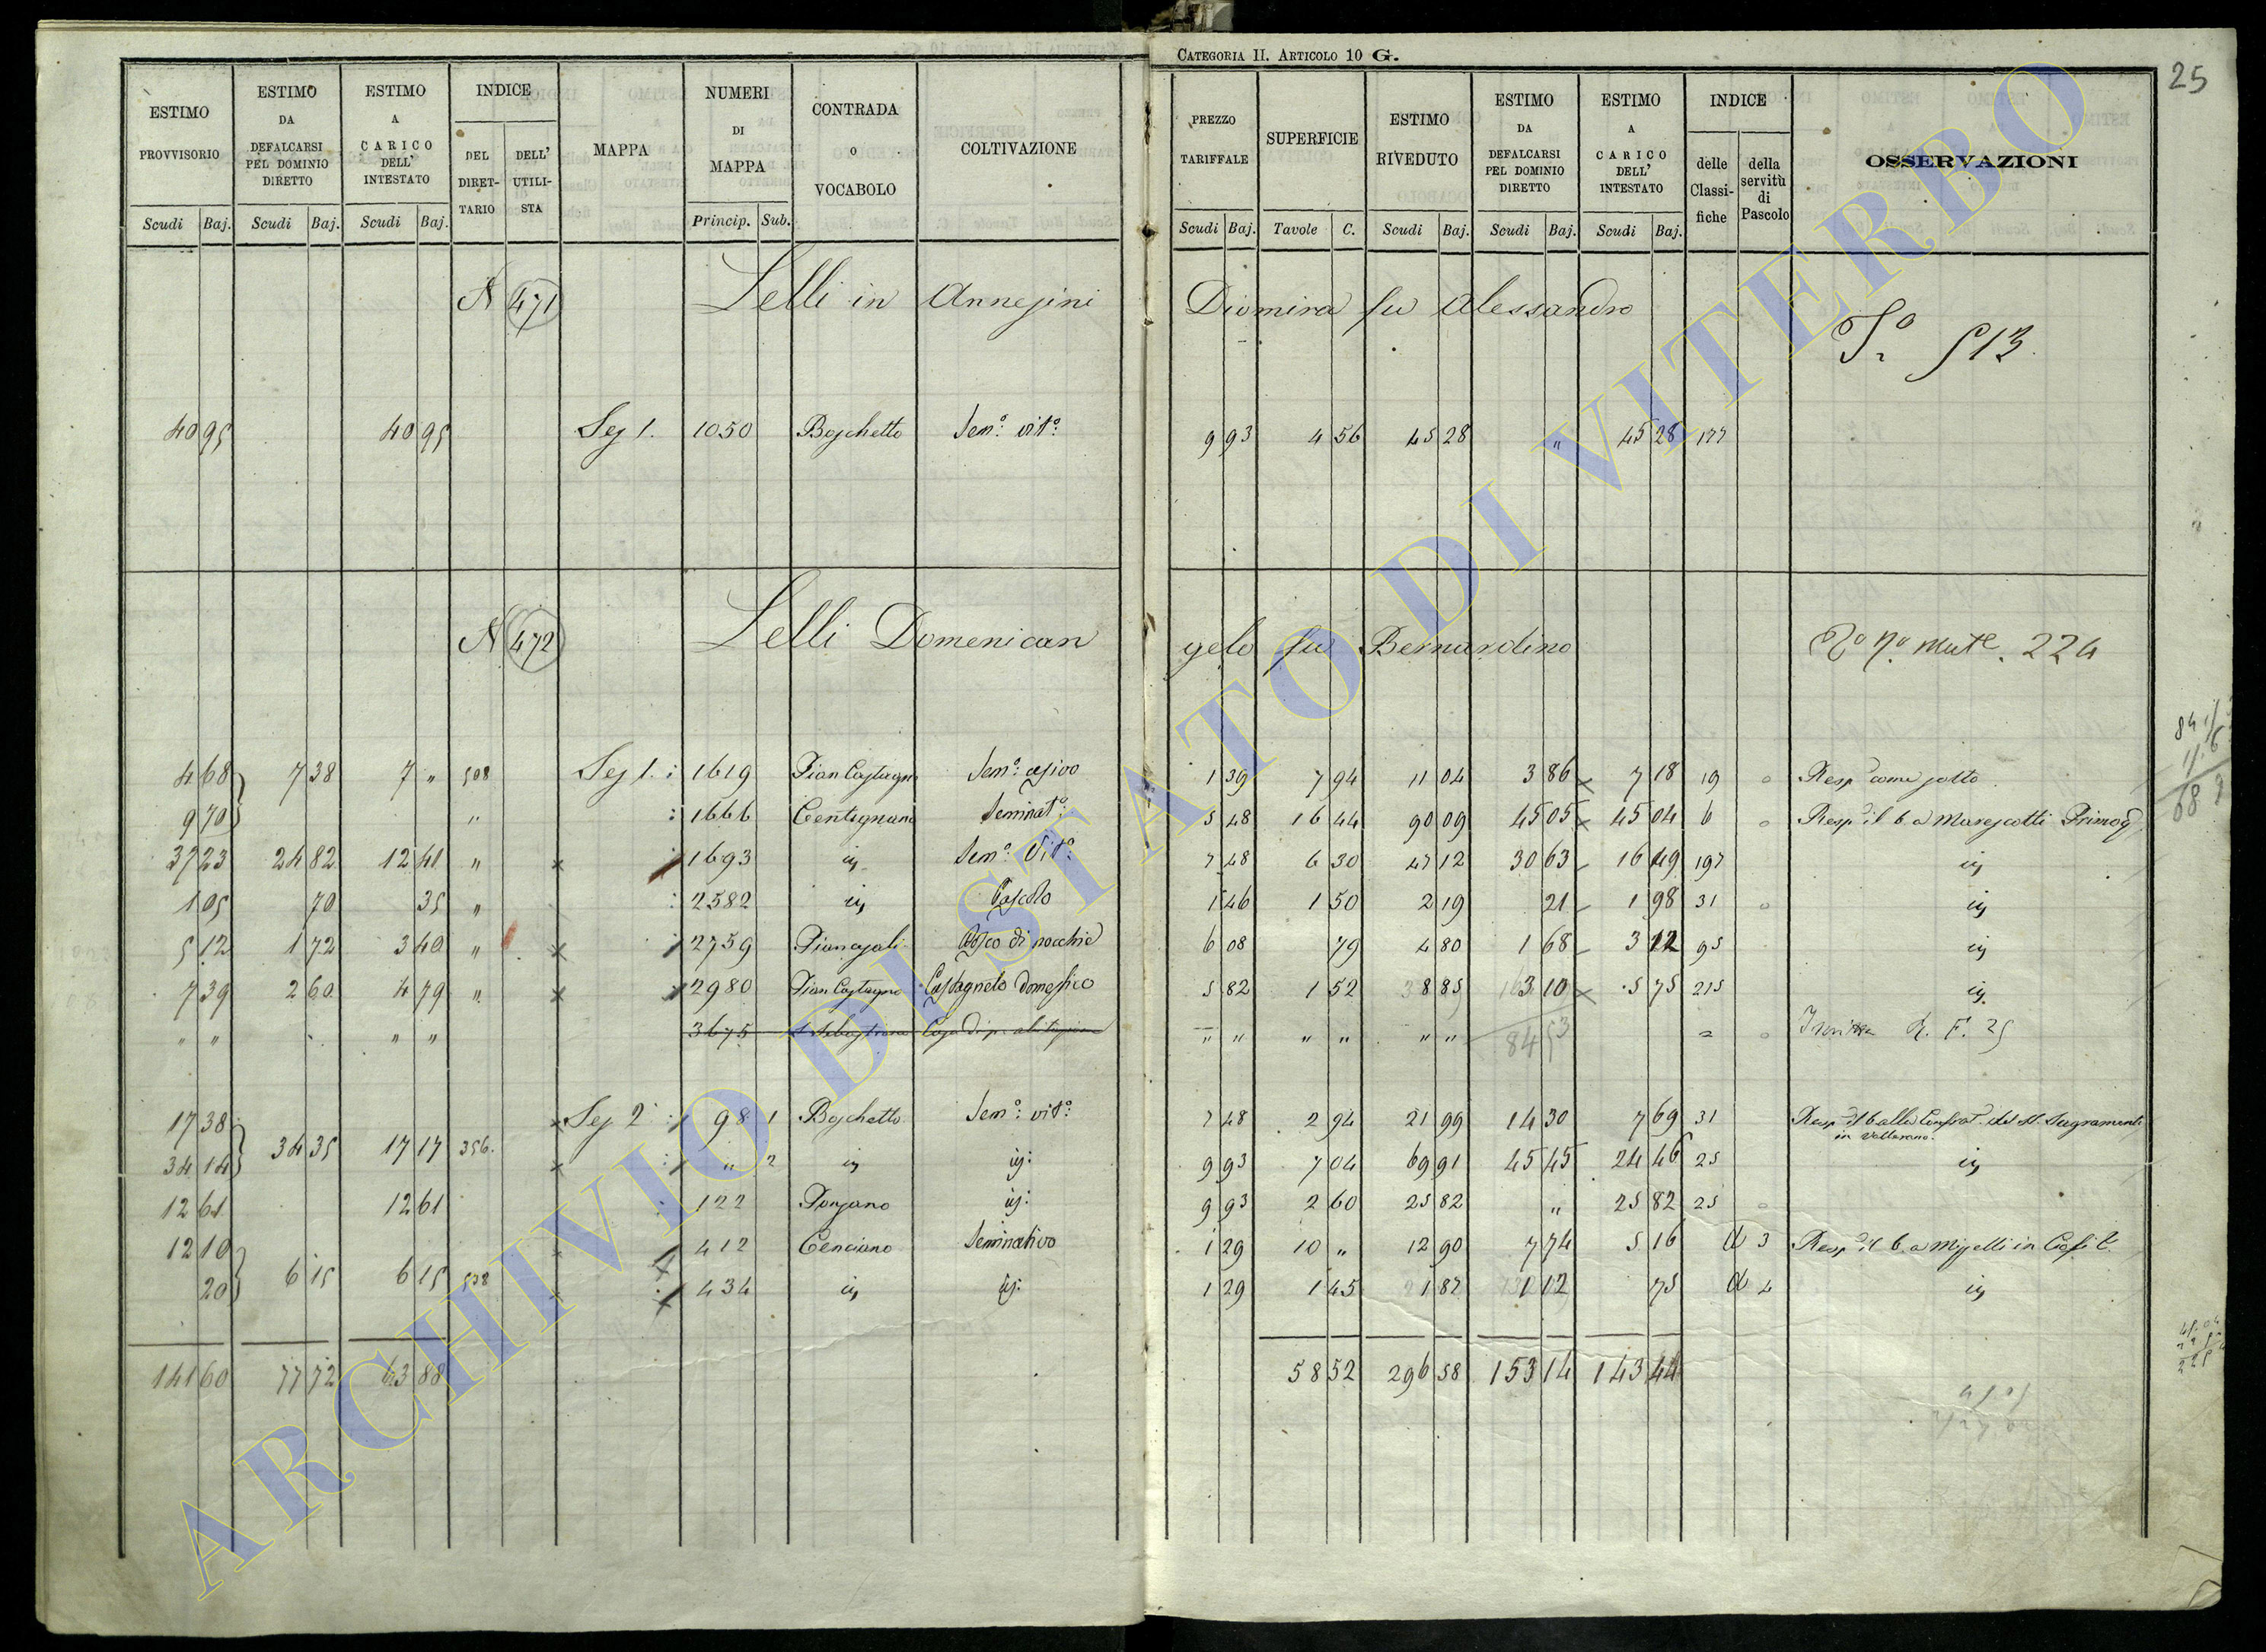 CATEGORIA II. ARTICOLO 10 G.
25
ESTIMO PROVVISORIO
ESTIMO DA DEFALCARSI PEL DOMINIO DIRETTO
ESTIMO A CARICO DELL' INTESTATO
INDICE
DEL DIRETTARIO
DELL' UTILISTA
MAPPA
NUMERI DI MAPPA
CONTRADA O VOCABOLO
COLTIVAZIONE
PREZZO TARIFFALE
SUPERFICIE
ESTIMO RIVEDUTO
ESTIMO DA DEFALCARSI PEL DOMINIO DIRETTO
ESTIMO A CARICO DELL' INTESTATO
INDICE
delle Classifiche
della servitù di Pascolo
OSSERVAZIONI
Scudi Baj. Scudi Baj. Scudi Baj. Princip. Sub. Scudi Baj. Tavole C. Scudi Baj. Scudi Baj. Scudi Baj.
N 471 Lelli in Annesini Diomira fu Alessandro
513
40 95 40 95 Sez 1. 1050 Boschetto Sem.º vit.º 9 93 4 56 45 28 " 45 28 177
N 472 Lelli Domenican gelo fu Bernardino 224
4 68 7 38 7 " 508 Sez 1. 1619 Pian Castagno Sem.º 1 39 7 94 11 04 3 86 7 18 19 Resp come sotto
9 70 " 1666 Centignano Seminat.º 5 48 16 44 90 09 45 05 45 04 6 Resp il b. a Marescotti Primog
37 23 24 82 12 41 " 1693 Sem.º Vit.º 7 48 6 30 47 12 30 63 16 49 197
1 05 70 35 " 2582 Pascolo 1 46 1 50 2 19 21 1 98 31
5 12 1 72 3 40 " 2759 6 08 79 4 80 1 68 3 12 95
7 39 2 60 4 79 " 2980 Pian Castagno Castagneto domestico 5 82 1 52 8 85 3 10 5 75 215
" " " " 3675 Casa di p. abitazione " " " " " " 25
84 53
17 38 Sez 2 98 1 Boschetto Sem.º vit.º 7 48 2 94 21 99 14 30 7 69 31 Resp il b alla Confrat. del SS. Sagramento in Vallerano.
34 14 34 35 17 17 356. " 2 9 93 7 04 69 91 45 45 24 46 25
12 61 12 61 122 Ponzano 9 93 2 60 25 82 " 25 82 25
12 10 412 Cenciano Seminativo 1 29 10 " 12 90 7 74 5 16 3
20 6 15 6 15 508 434 1 29 1 45 1 87 1 12 75 4
141 60 77 72 63 88 58 52 296 58 153 14 143 44
ARCHIVIO DI STATO DI VITERBO